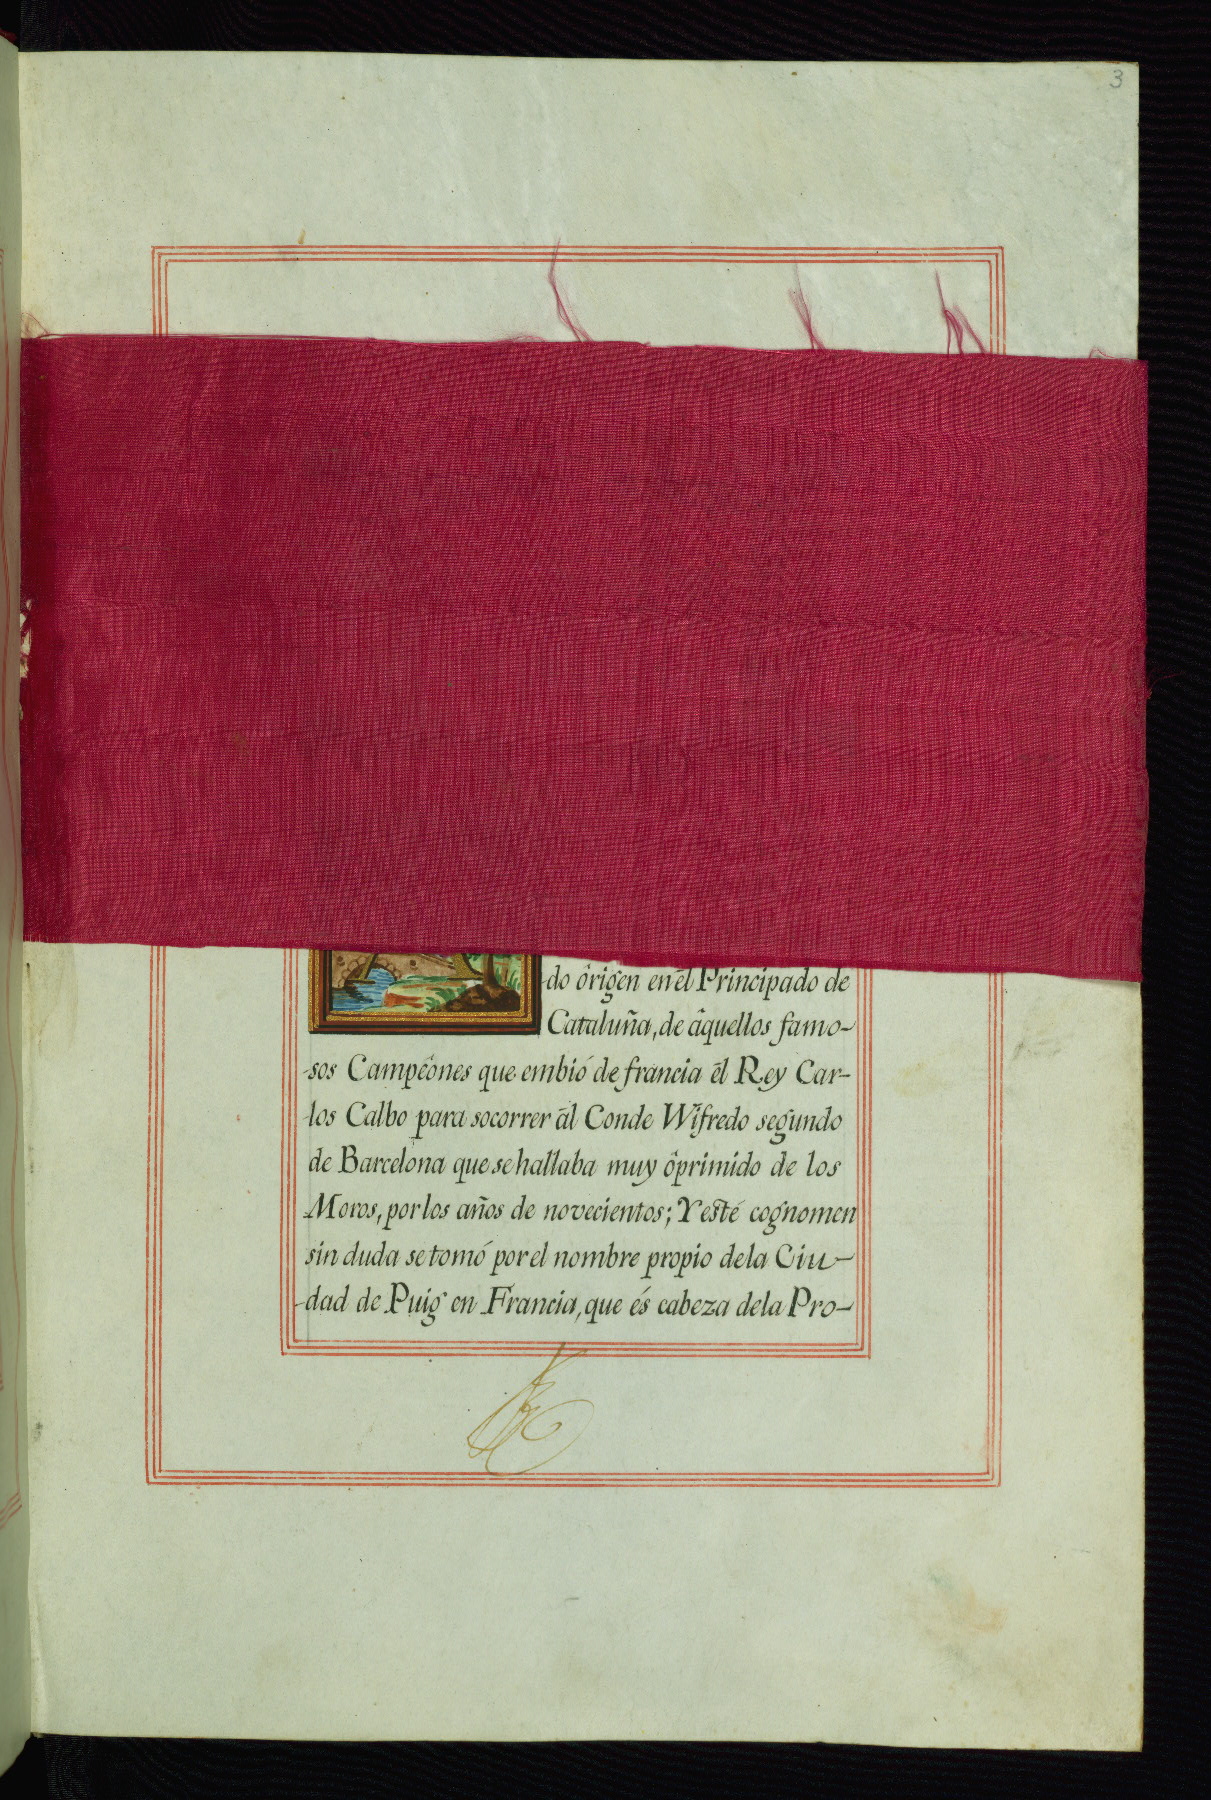 3
do ôrigen en ēl Principado de
Cataluña, de âquellos famo-
sos Campeônes que embió de francia ēl Rey Car-
los Calbo para socorrer āl Conde Wifredo segundo
de Barcelona que se hallaba muy ôprimido de los
Moros, por los años de novecientos; Y esté cognomen
sin duda se tomó por el nombre propio dela Ciu-
dad de Puig en Francia, que és cabeza dela Pro-